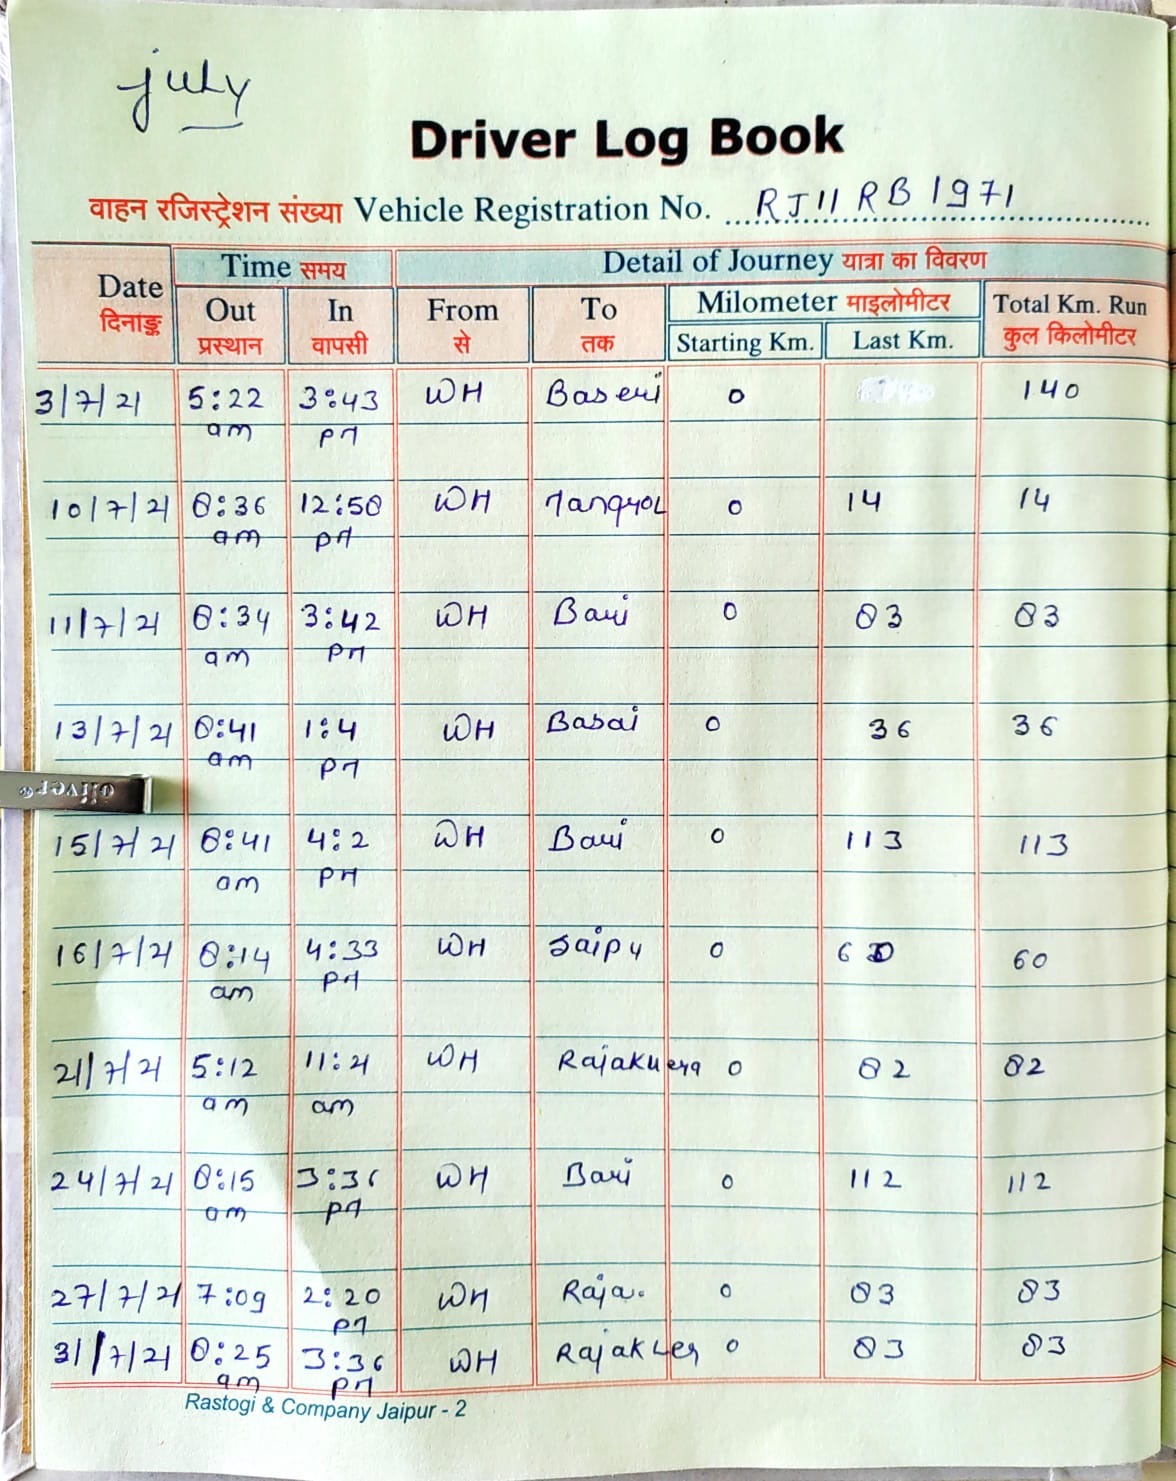 july
Driver Log Book
वाहन रजिस्ट्रेशन संख्या Vehicle Registration No. RJ11 RB 1971
Date दिनाङ्क Time समय Detail of Journey यात्रा का विवरण
Out प्रस्थान In वापसी From से To तक Milometer माइलोमीटर Total Km. Run कुल किलोमीटर
Starting Km. Last Km.
3/7/21 5:22 am 3:43 PM WH Baseri 0 140
10/7/21 8:36 am 12:58 PM WH 0 14 14
11/7/21 8:34 am 3:42 PM WH Bari 0 83 83
13/7/21 8:41 am 1:4 PM WH Basai 0 36 36
15/7/21 8:41 am 4:2 PM WH Bari 0 113 113
16/7/21 8:14 am 4:33 PM WH Saipu 0 60 60
21/7/21 5:12 am 11:21 am WH Rajakhera 0 82 82
24/7/21 8:15 am 3:36 PM WH Bari 0 112 112
27/7/21 7:09 2:20 PM WH Raja. 0 83 83
31/7/21 8:25 am 3:36 PM WH Rajakher 0 83 83
Rastogi & Company Jaipur - 2
oliver®